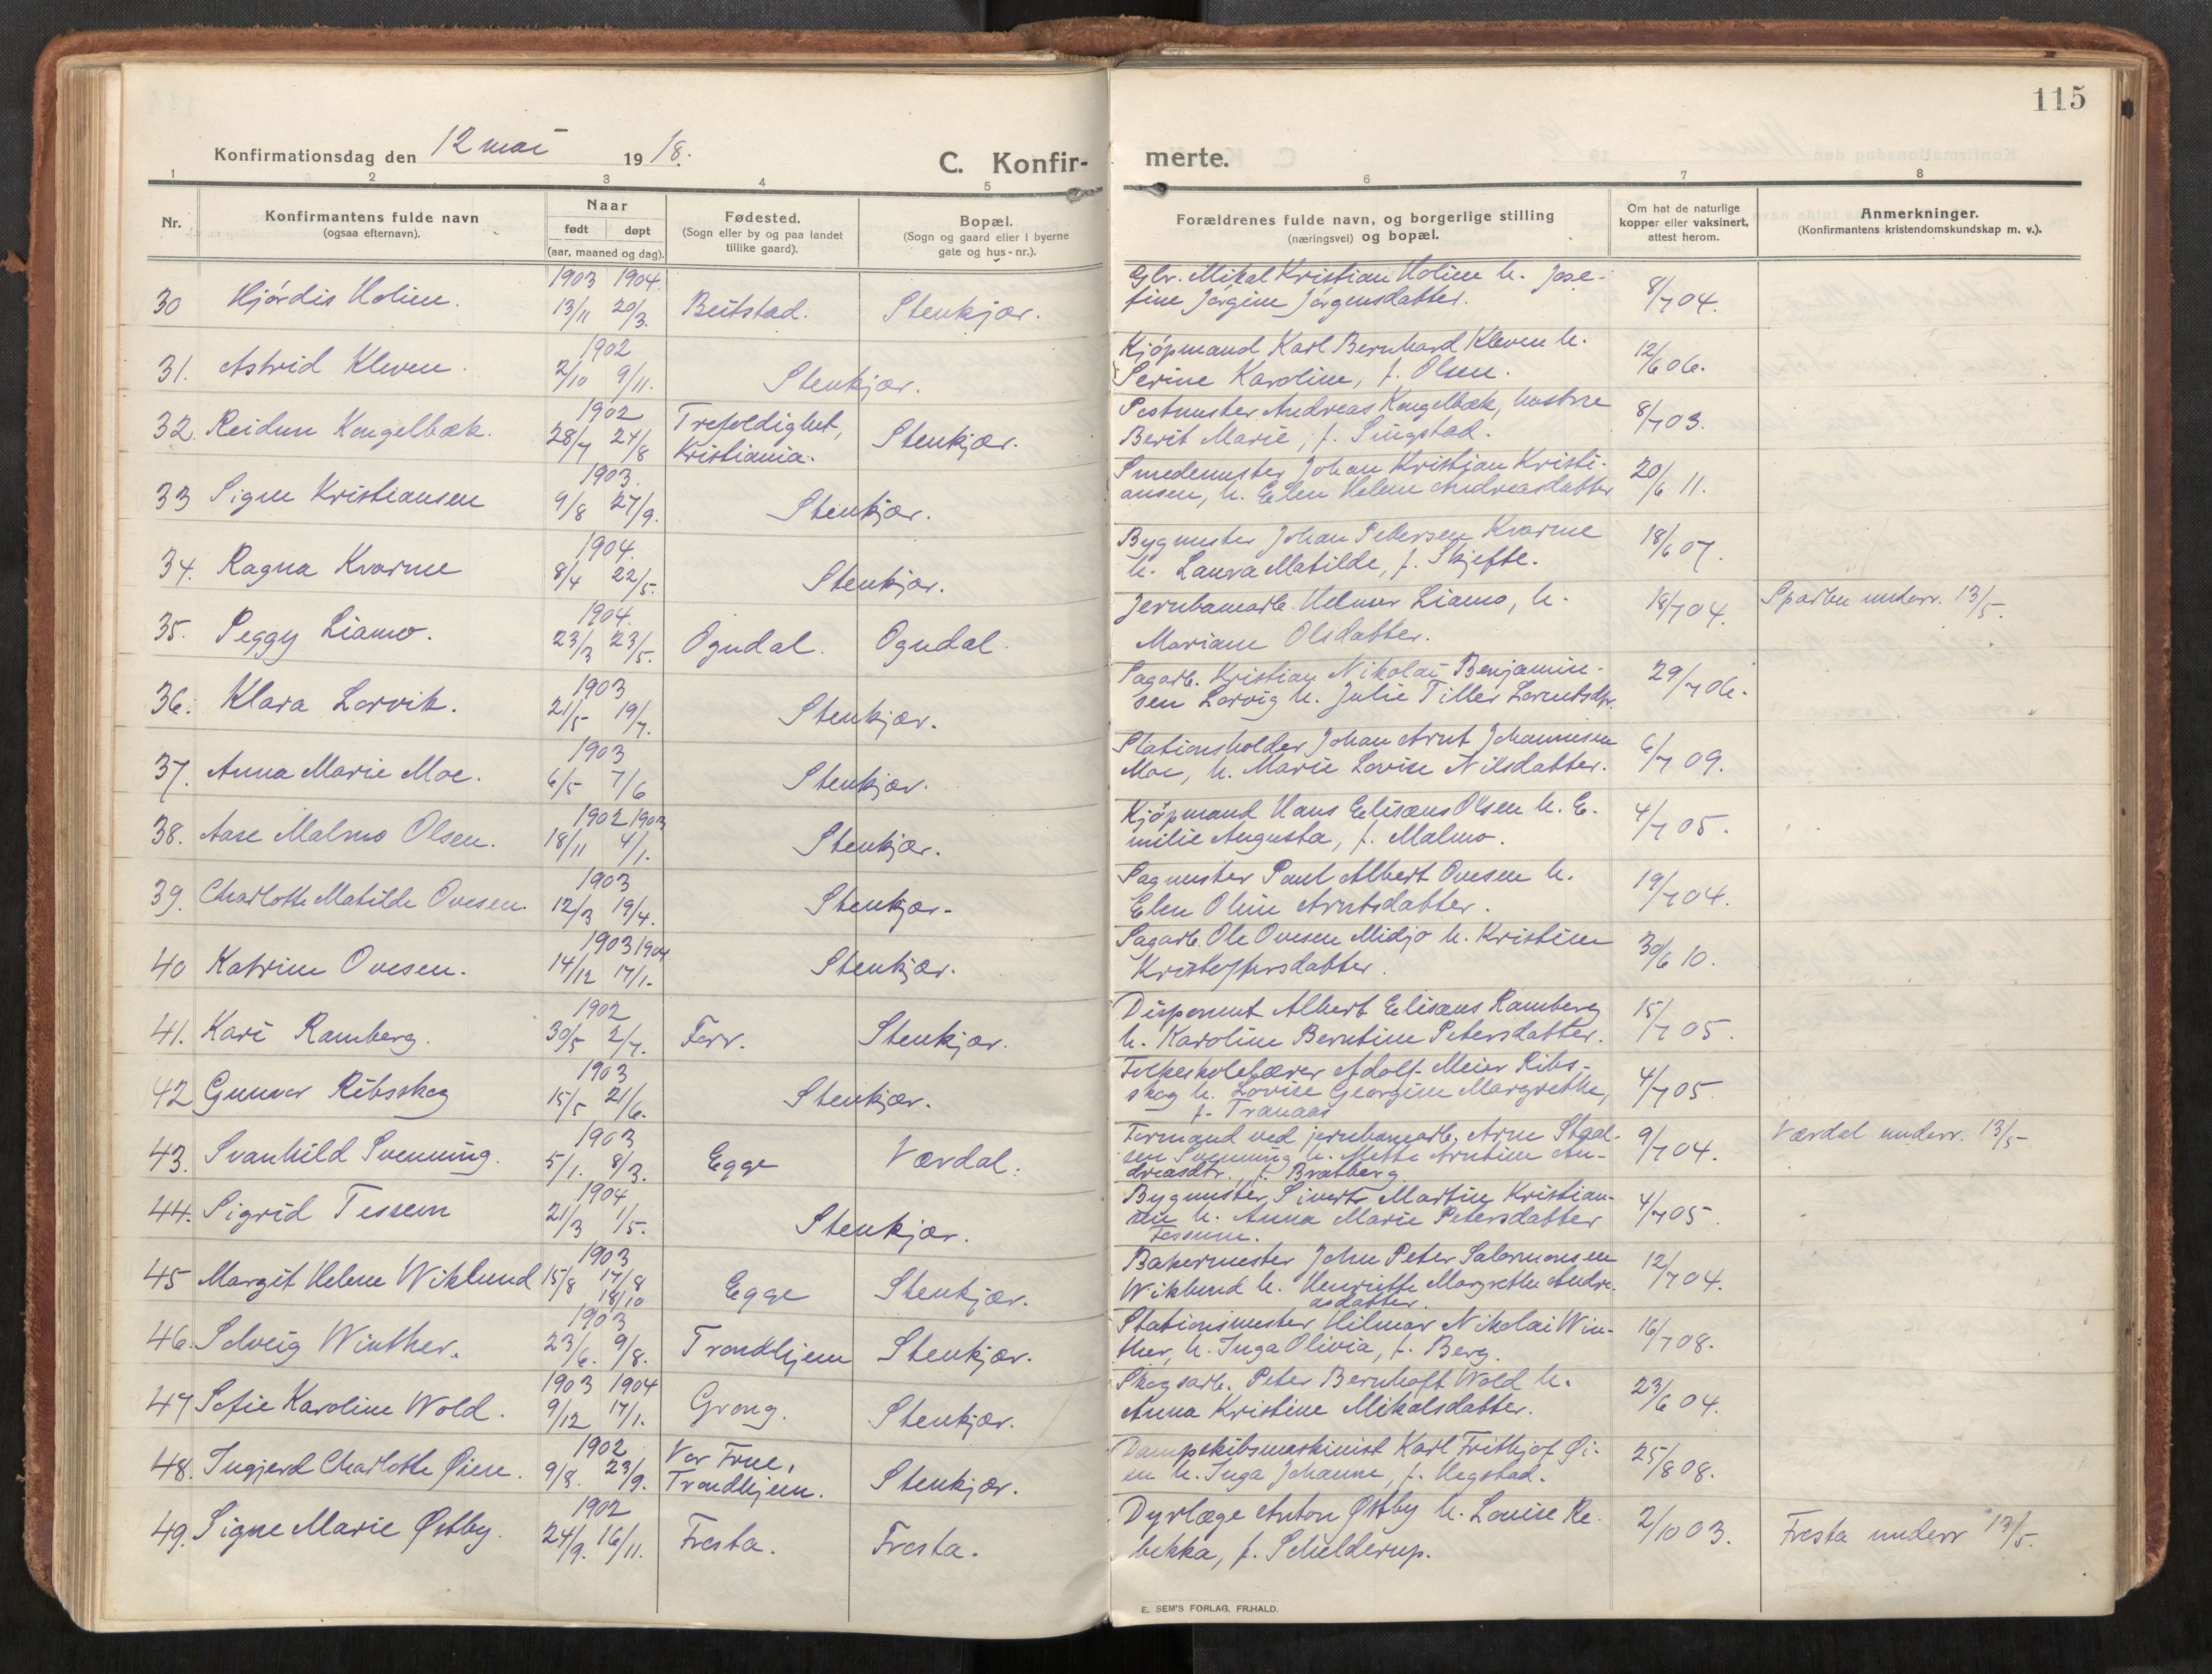 115
Konfirmationsdag den 12 mai 1918.
C. Konfirmerte.
1 2 3 4 5 6 7 8
Nr.
Konfirmantens fulde navn
(ogsaa efternavn).
Naar
født døpt
(aar, maaned og dag).
Fødested.
(Sogn eller by og paa landet
tillike gaard).
Bopæl.
(Sogn og gaard eller i byerne
gate og hus-nr.).
Forældrenes fulde navn, og borgerlige stilling
(næringsvei) og bopæl.
Om hat de naturlige
kopper eller vaksinert,
attest herom.
Anmerkninger.
(Konfirmantens kristendomskundskap m. v.).
1903 1904.
30 Hjördis Holien. 13/11 20/3. Beitstad. Stenkjær.
Gbr. Mikal Kristian Holien h. Jose-
fine Jørgine Jørgensdatter. 8/7 04.
1902
31. Astrid Kleven. 2/10 9/11. Stenkjær.
Kjöpmand Karl Bernhard Kleven h.
Serine Karoline, f. Olsen. 12/6 06.
1902
32. Reidun Kengelbæk. 28/7 24/8 Trefoldighet,
Kristiania. Stenkjær.
Postmester Andreas Kengelbæk, hustru
Berit Marie, f. Singstad. 8/7 03.
1903.
33 Signe Kristiansen 9/8 27/9. Stenkjær.
Smedemester Johan Kristian Kristi-
ansen, h. Elen Helene Andreasdatter 20/6 11.
1904.
34. Ragna Kvarme 8/4 22/5. Stenkjær.
Bygmester Johan Petersen Kvarme
h. Laura Matilde, f. Skjefte. 18/6 07.
1904.
35. Peggy Liamo. 23/3 23/5. Ogndal. Ogndal.
Jernbanearb. Helmer Liamo, h.
Mariane Olsdatter. 18/7 04. Sparbu underr. 13/5.
1903
36. Klara Lorvik. 21/5 19/7. Stenkjær.
Sagarb. Kristian Nikolai Benjamin-
sen Lorvig h. Julie Tiller Lorentsdtr. 29/7 06.
1903
37. Anna Marie Moe. 6/5 7/6 Stenkjær.
Stationsholder Johan Arnt Johannesen
Moe, h. Marie Lovise Nilsdatter. 6/7 09.
1902 1903
38. Aase Malmo Olsen. 18/11 4/1. Stenkjær.
Kjöpmand Hans Elisæus Olsen h. E-
milie Augusta, f. Malmo. 4/7 05.
1903
39. Charlotte Matilde Ovesen. 12/3 19/4. Stenkjær.
Sagmester Paul Albert Ovesen h.
Elen Oline Arntsdatter. 19/7 04.
1903 1904
40 Katrine Ovesen. 14/12 17/1. Stenkjær.
Sagarb. Ole Ovesen Midjo h. Kristine
Kristoffersdatter. 30/6 10.
1902
41. Kari Ramberg. 30/5 2/7. Forr. Stenkjær.
Disponent Albert Elisæus Ramberg
h. Karoline Berntine Petersdatter. 15/7 05.
1903
42 Gunvor Ribsskog 15/5 21/6. Stenkjær.
Folkeskolelærer Adolf Meier Ribs-
skog h. Lovise Georgine Margrethe,
f. Tranaas 4/7 05.
1903
43. Svanhild Svenning. 5/1. 8/3. Egge Værdal.
Formand ved jernbanearb. Arne Staal-
sen Svenning h. Mette Arntine An-
dreasdtr., f. Bratberg 9/7 04. Værdal underr. 13/5.
1904
44. Sigrid Tessem 21/3 1/5. Stenkjær.
Bygmester Sivert Martin Kristian-
sen h. Anna Marie Petersdatter
Tessem. 4/7 05.
1903
45 Margit Helene Wiklund 15/8 17/8
18/10 Egge Stenkjær.
Bakermester John Peter Salomonsen
Wiklund h. Henriette Margrethe Andre-
asdatter. 12/7 04.
1903
46. Solveig Winther. 23/6. 9/8. Trondhjem Stenkjær.
Stationsmester Hilmar Nikolai Win-
ther, h. Inga Olivia, f. Berg. 16/7 08.
1903 1904
47 Sofie Karoline Wold. 9/12 17/1. Grong. Stenkjær.
Skogsarb. Peter Bernhoft Wold h.
Anna Kristine Mikalsdatter. 23/6 04.
1902
48. Ingjerd Charlotte Øien. 9/8. 23/9. Vor Frue,
Trondhjem. Stenkjær.
Dampskibsmaskinist Karl Frithjof Øi-
en h. Inga Johanne, f. Hegstad. 25/8 08.
1902
49. Signe Marie Østby. 24/9. 16/11. Frosta. Frosta.
Dyrlæge Anton Østby h. Louise Re-
bekka, f. Schelderup. 2/10 03. Frosta underr 13/5.
E. SEM'S FORLAG, FR.HALD.